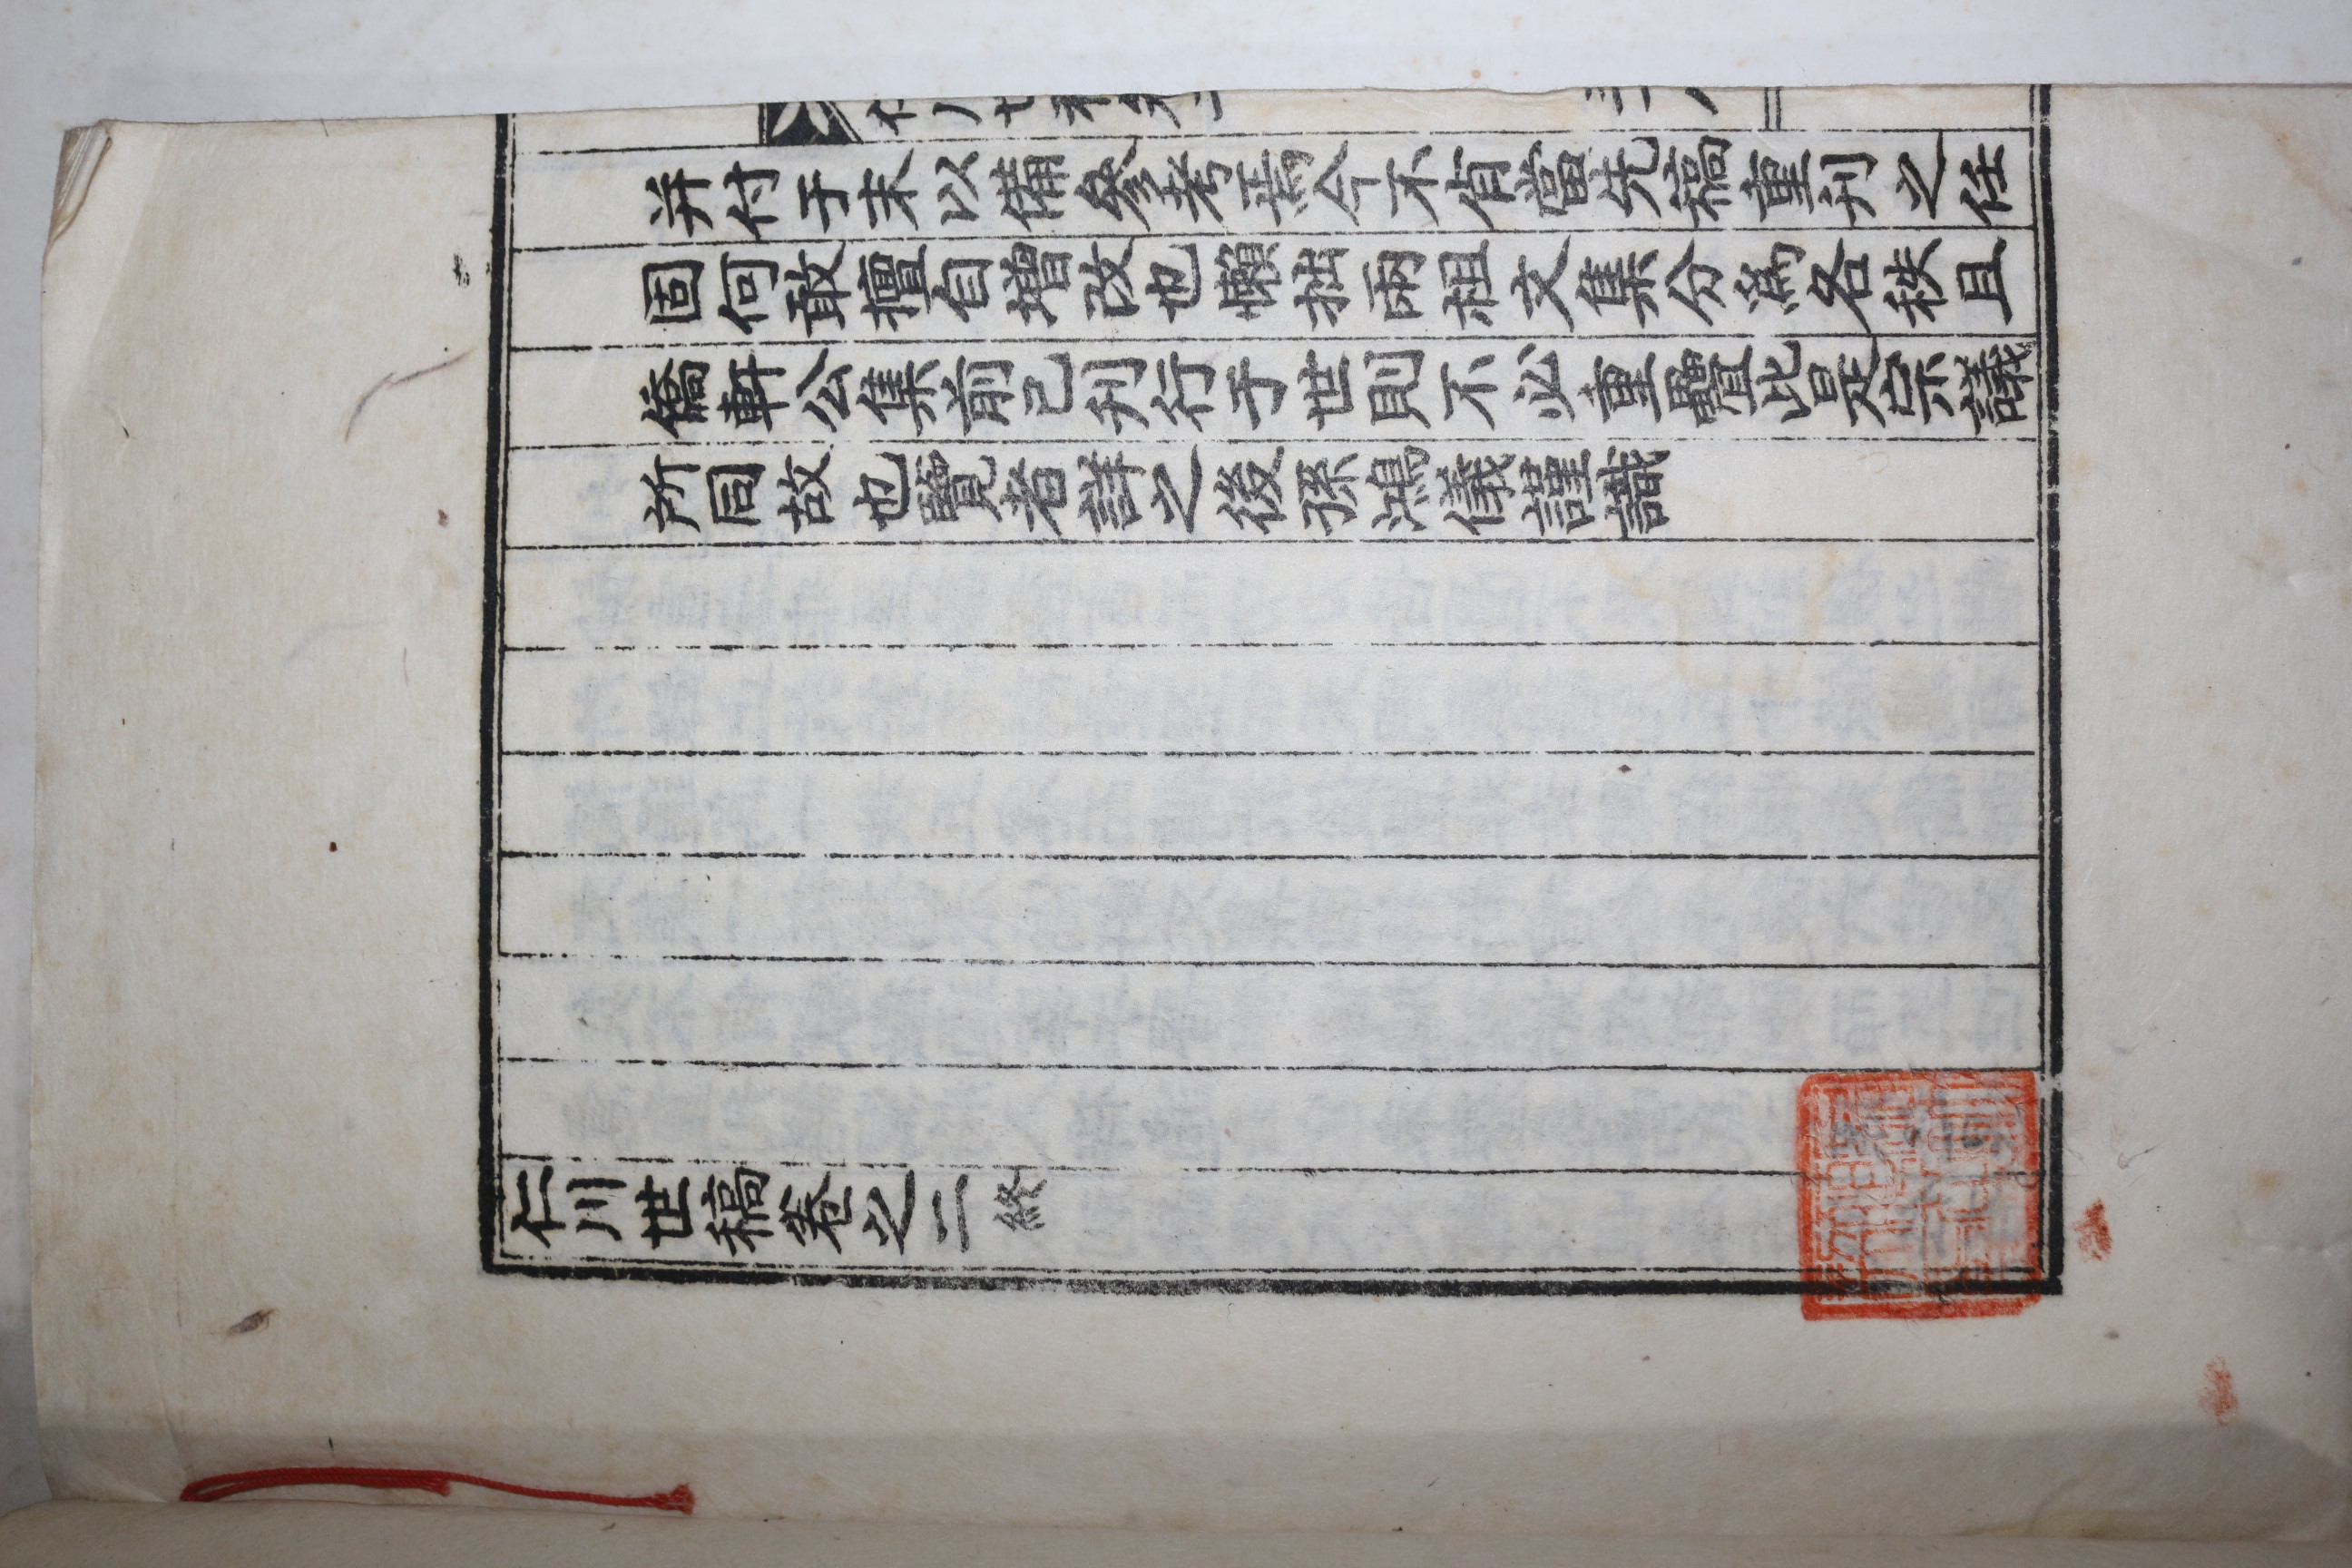 并付于末以備參考焉今不肯當先稿重刊之任
固何敢擅自增改也懶拙兩祖文集分爲各秩且
僑軒公集前已刊行于世則不必重疊此是宗議
所同故也覽者詳之後孫鴻儀謹識
仁川世稿卷之二終